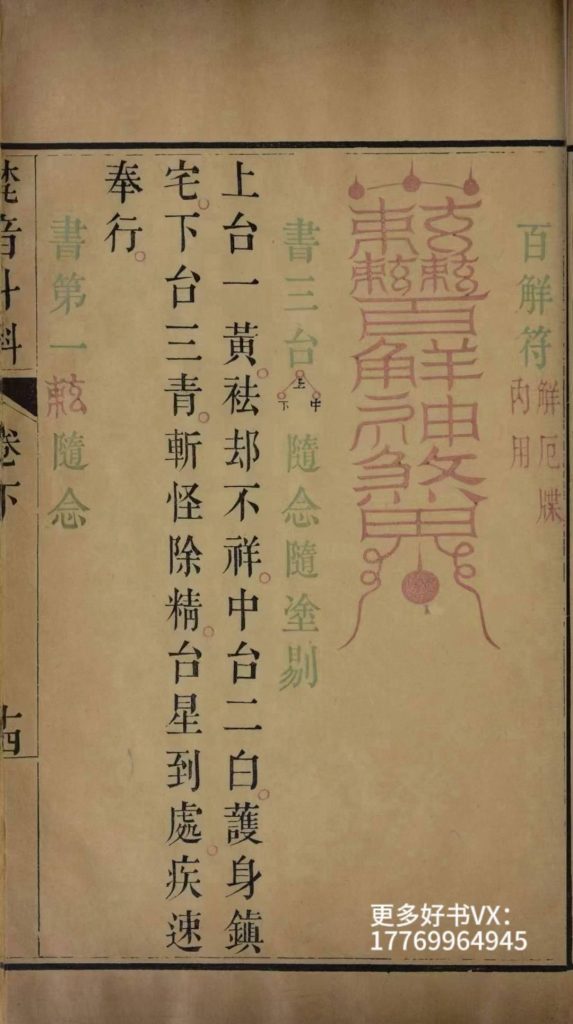 百解符
解厄牒
内用
書三台
上
中
下
隨念隨塗剔
上台一黃。祛却不祥。中台二白。護身鎮
宅。下台三青。斬怪除精。台星到處。疾速
奉行。
書第一
隨念
卷下
十四
更多好书VX:
17769964945